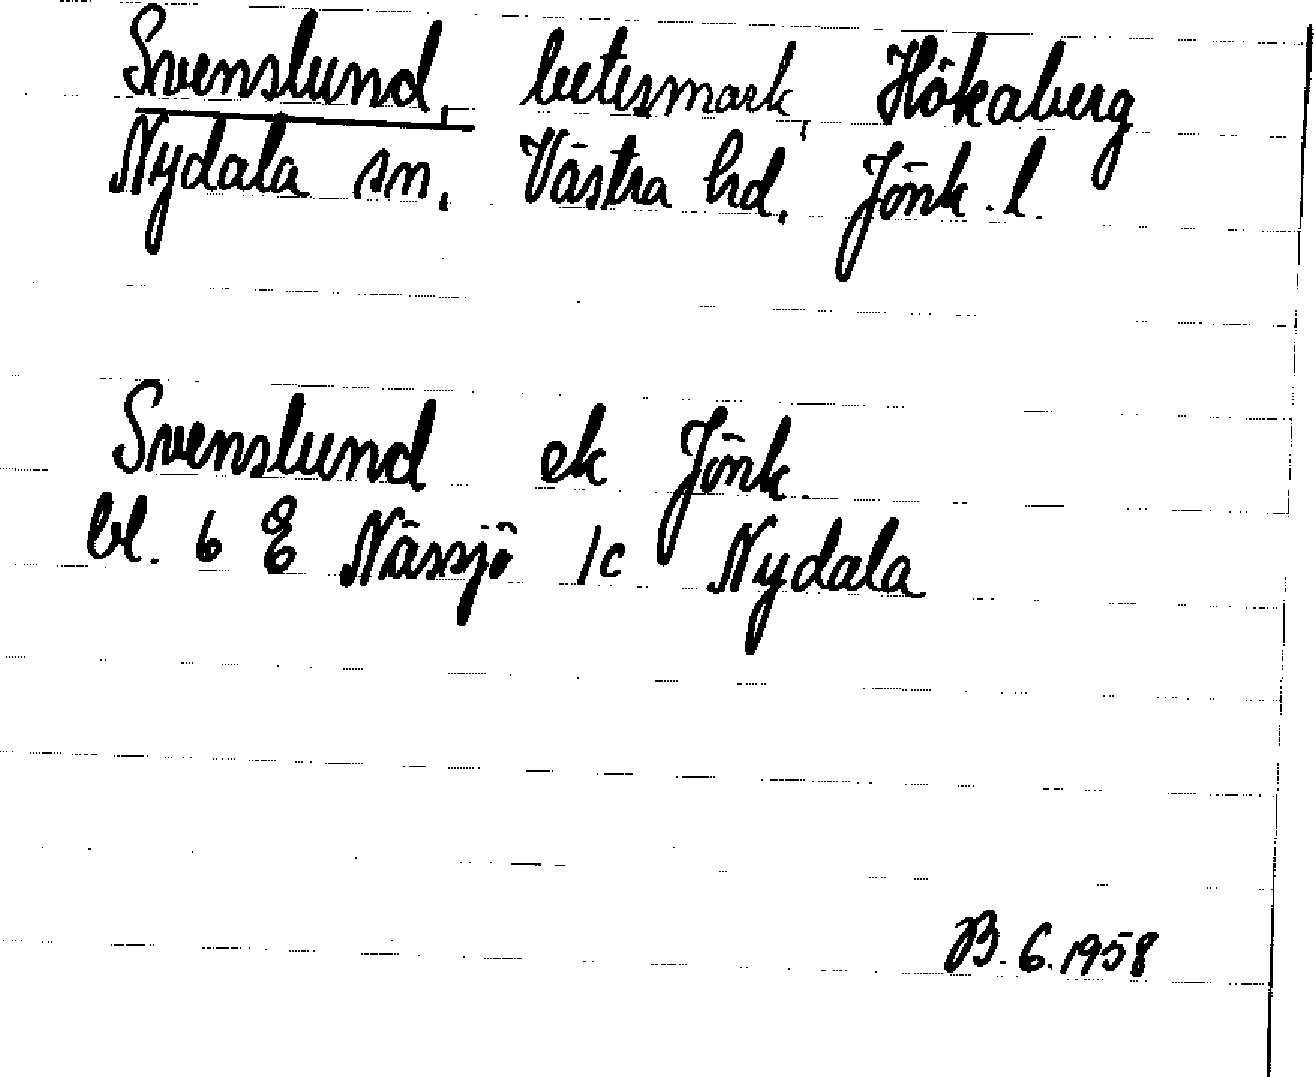 Svenslund, betesmark, Hökaberg
Nydala sn. Västra hd. Jönk. l.
Svenslund ek Jönk.
bl. 6 E Nässjö 1c Nydala
B. 6. 1958